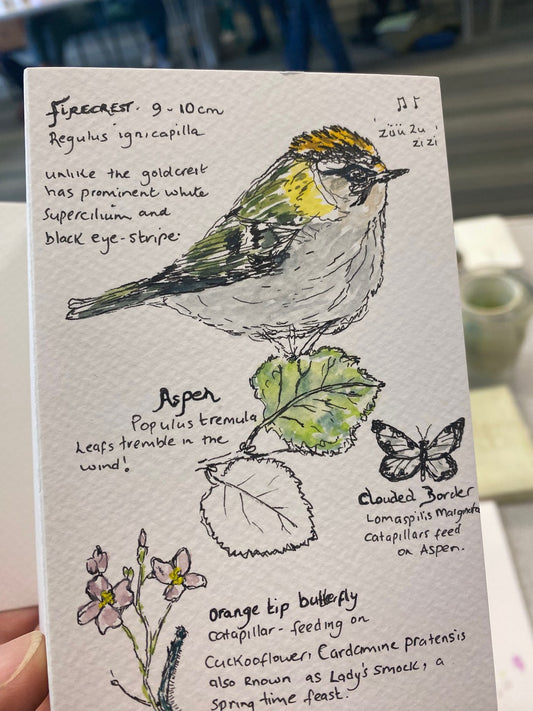 Firecrest. 9-10cm
Regulus ignicapilla
unlike the goldcrest
has prominent white
supercilium and
black eye-stripe.
'züü zu
zi zi'
Aspen
Populus tremula
Leafs tremble in the
wind!
Clouded Border
Lomaspilis Marginata
Catapillars feed
on Aspen.
Orange tip butterfly
catapillar - feeding on
Cuckooflower, Cardamine pratensis
also known as Lady's smock, a
spring time feast.